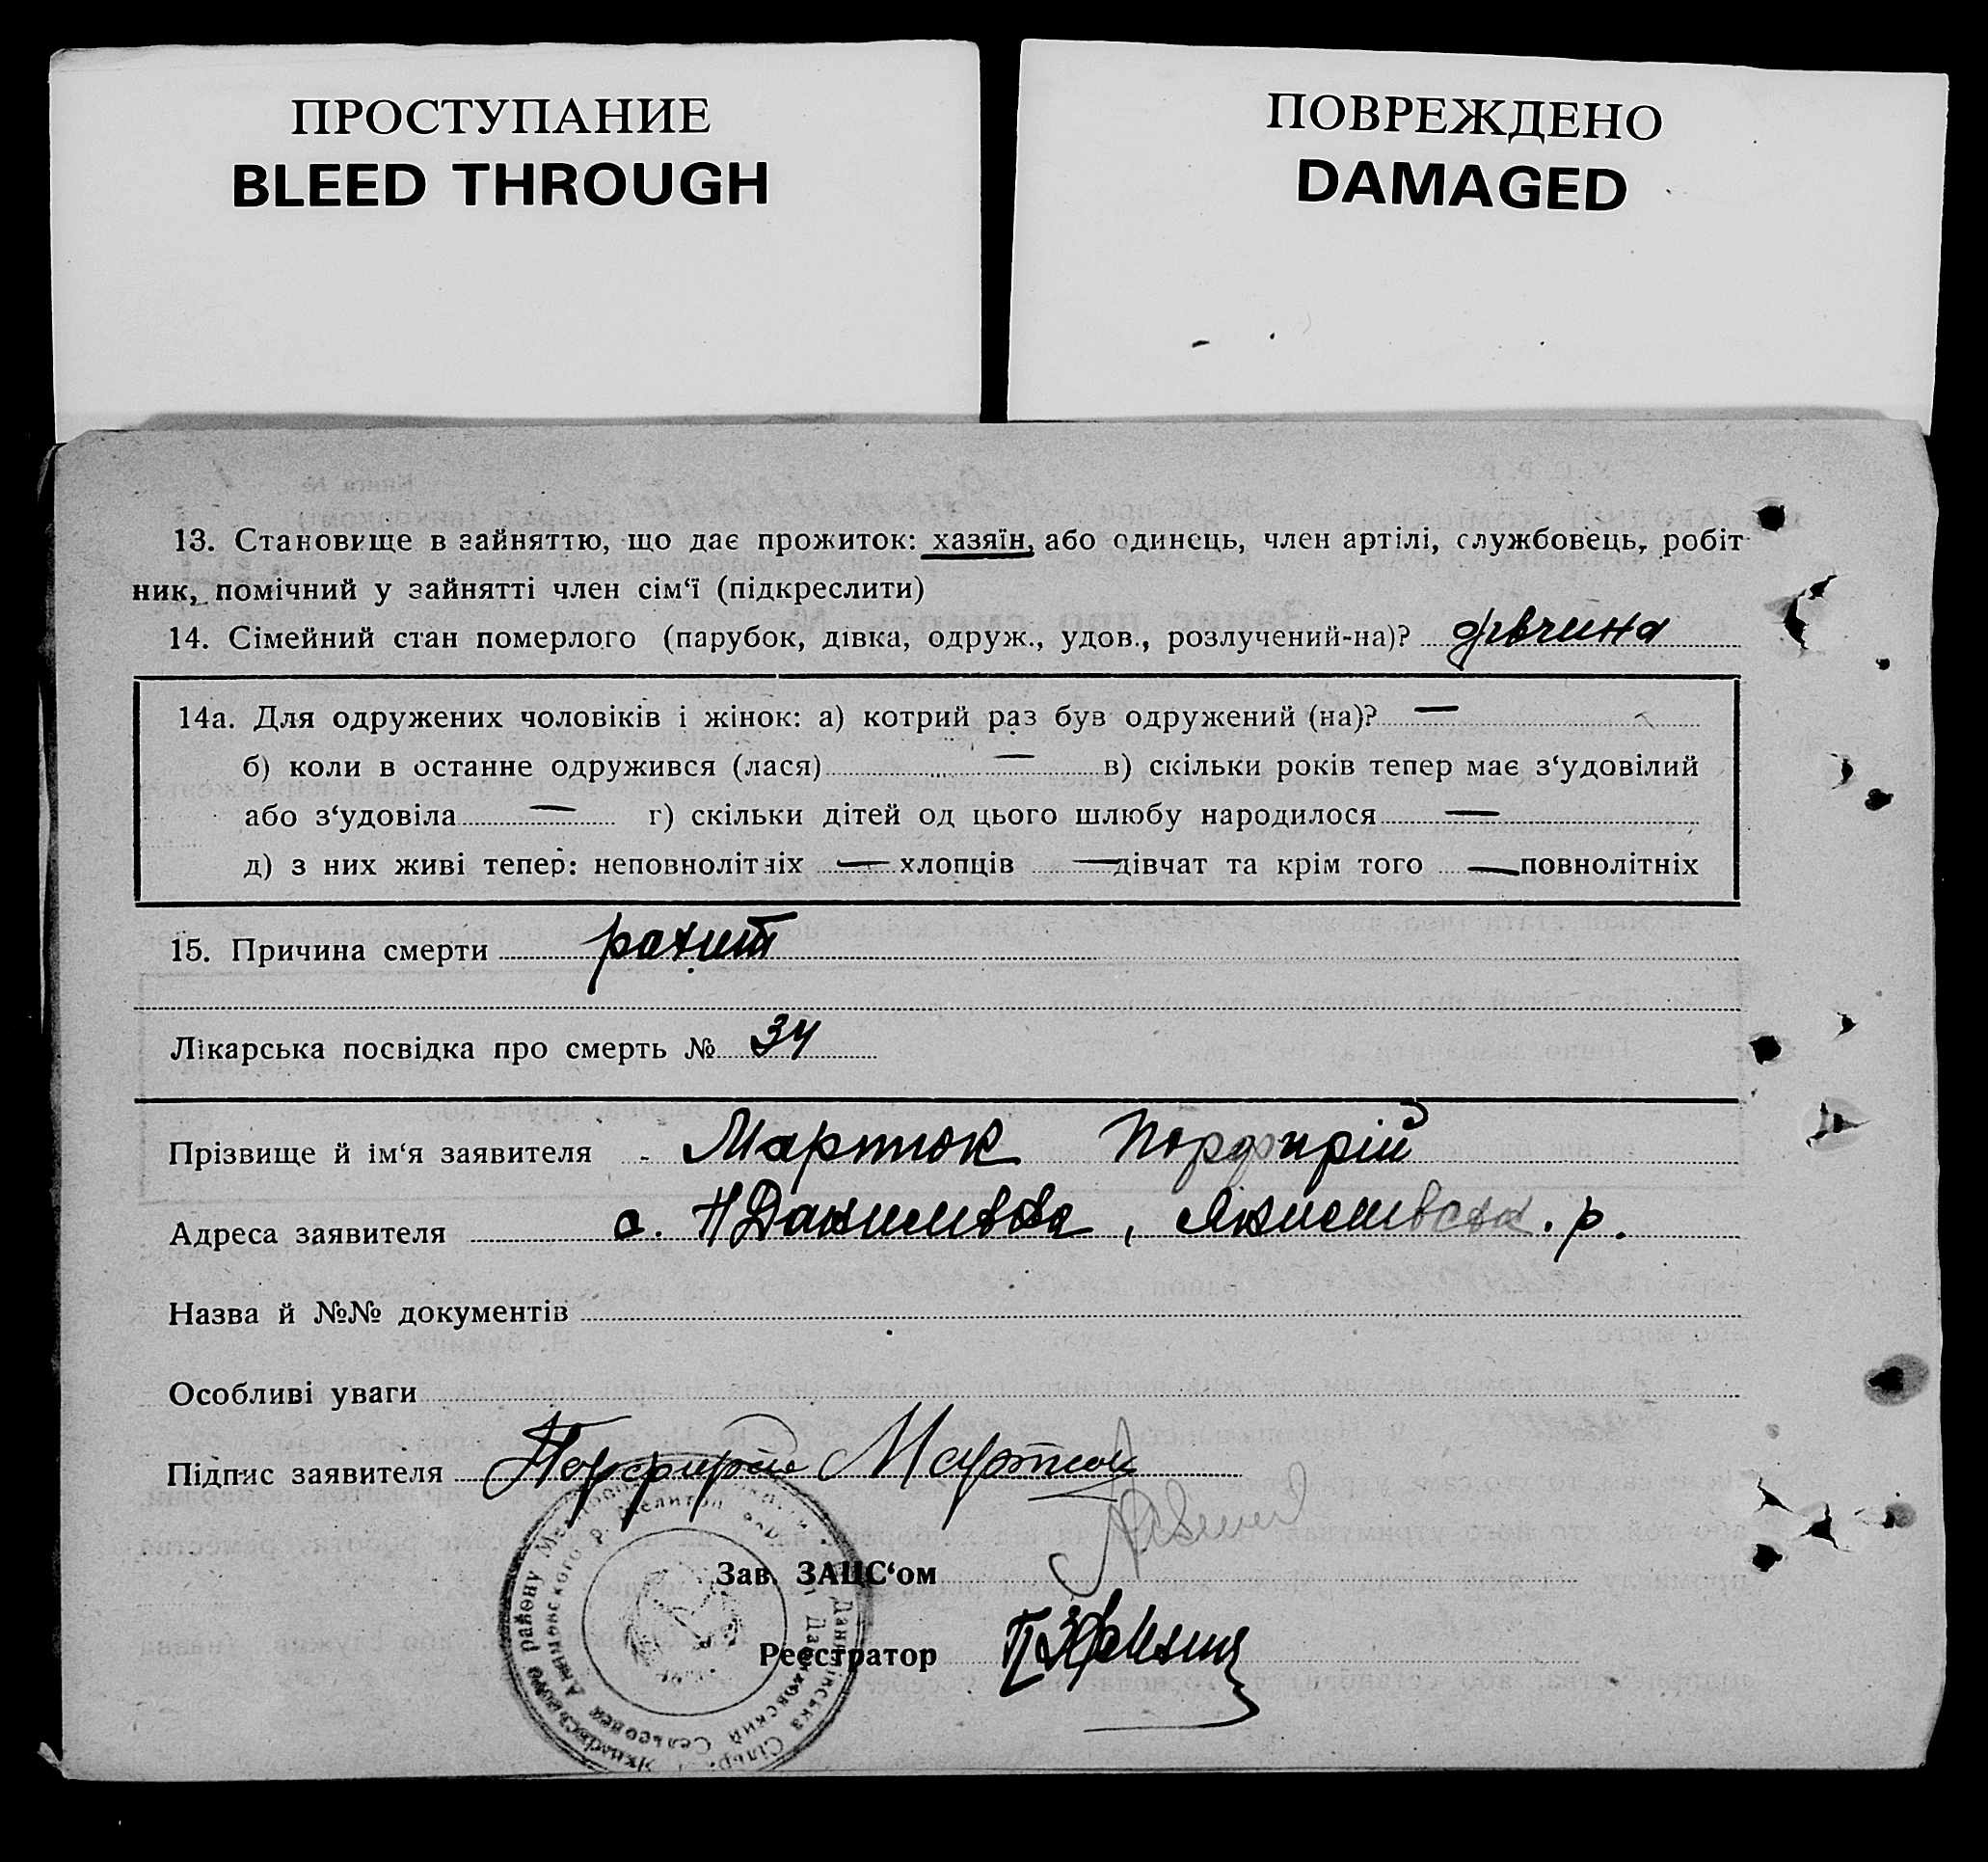 ПРОСТУПАНИЕ
BLEED THROUGH
ПОВРЕЖДЕНО
DAMAGED
13. Становище в зайняттю, що дає прожиток: хазяїн, або одинець, член артілі, службовець, робіт
ник, помічний у зайнятті член сім‘ї (підкреслити)
14. Сімейний стан померлого (парубок, дівка, одруж., удов., розлучений-на)? дівчина
14а. Для одружених чоловіків і жінок: а) котрий раз був одружений (на)? —
б) коли в останне одружився (лася) — в) скільки років тепер має з‘удовілий
або з‘удовіла — г) скільки дітей од цього шлюбу народилося —
д) з них живі тепер: неповнолітніх — хлопців — дівчат та крім того — повнолітніх
15. Причина смерти рахит
Лікарська посвідка про смерть № 34
Прізвище й ім‘я заявителя - Мартюк Порфирій
Адреса заявителя с. Н Данилівка, Якимівськ. р.
Назва й №№ документів
Особливі уваги
Підпис заявителя Порфирій Мартюк
Зав. ЗАЦС‘ом
Реєстратор
району
Данилівська Сільр.
Даниловский Сельсовет Акимовского р. Мелитоп. окр.